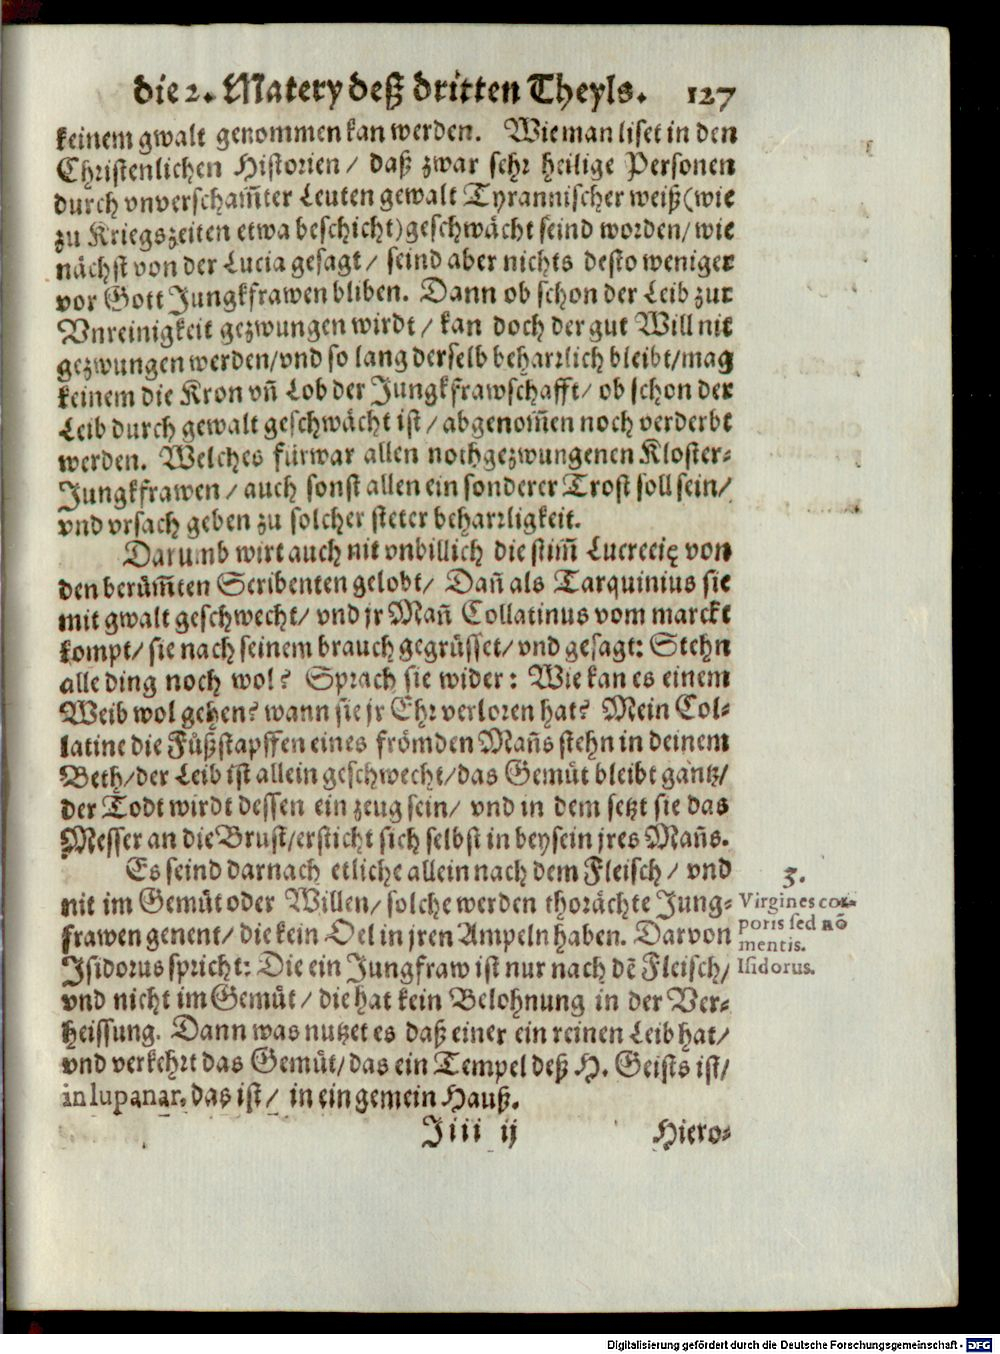 die 2. Matery deß dritten Theyls. 127
keinem gwalt genommen kan werden. Wie man liset in den
Christenlichen Historien/ daß zwar sehr heilige Personen
durch vnverscham̃ter Leuten gewalt Tyrannischer weiß (wie
zu Kriegszeiten etwa beschicht) geschwächt seind worden/ wie
nächst von der Lucia gesagt/ seind aber nichts desto weniger
vor Gott Jungkfrawen bliben. Dann ob schon der Leib zur
Vnreinigkeit gezwungen wirdt/ kan doch der gut Will nit
gezwungen werden/ vnd so lang derselb beharrlich bleibt/ mag
keinem die Kron vñ Lob der Jungkfrawschafft/ ob schon der
Leib durch gewalt geschwächt ist/ abgenom̃en noch verderbt
werden. Welches fürwar allen nothgezwungenen Kloster-
Jungkfrawen/ auch sonst allen ein sonderer Trost soll sein/
vnd vrsach geben zu solcher steter beharrligkeit.
Darumb wirt auch nit vnbillich die stim̃ Lucrecię von
den berům̃ten Scribenten gelobt/ Dañ als Tarquinius sie
mit gwalt geschwecht/ vnd jr Mañ Collatinus vom marckt
kompt/ sie nach seinem brauch gegrüsset/ vnd gesagt: Stehn
alle ding noch wol? Sprach sie wider: Wie kan es einem
Weib wol gehen? wann sie jr Ehr verloren hat? Mein Col-
latine die Füßstapffen eines frömden Mañs stehn in deinem
Beth/ der Leib ist allein geschwecht/ das Gemüt bleibt gantz/
der Todt wirdt dessen ein zeug sein/ vnd in dem setzt sie das
Messer an die Brust/ ersticht sich selbst in beysein jres Mañs.
Es seind darnach etliche allein nach dem Fleisch/ vnd
nit im Gemüt oder Willen/ solche werden thorächte Jung-
frawen genent/ die kein Oel in jren Ampeln haben. Darvon
Isidorus spricht: Die ein Jungfraw ist nur nach dē Fleisch/
vnd nicht im Gemüt/ die hat kein Belohnung in der Ver-
heissung. Dann was nutzet es daß einer ein reinen Leib hat/
vnd verkehrt das Gemüt/ das ein Tempel deß H. Geists ist/
in lupanar, das ist/ in ein gemein Hauß.
3.
Virgines cor-
poris sed nō
mentis.
Isidorus.
Jiii ij Hiero-
Digitalisierung gefördert durch die Deutsche Forschungsgemeinschaft - DFG